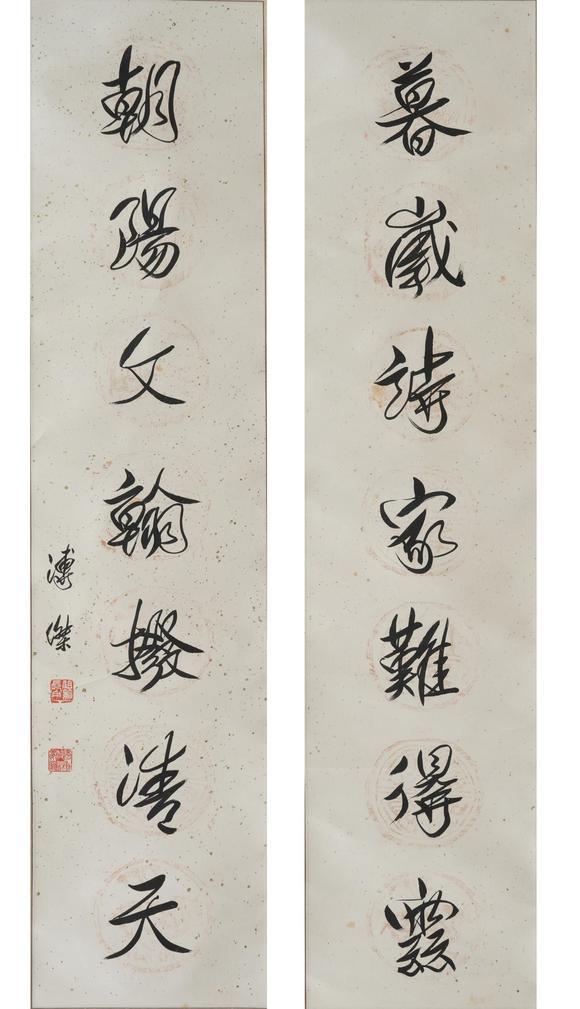 暮歲詩家難得
朝陽文翰撥清天
溥傑